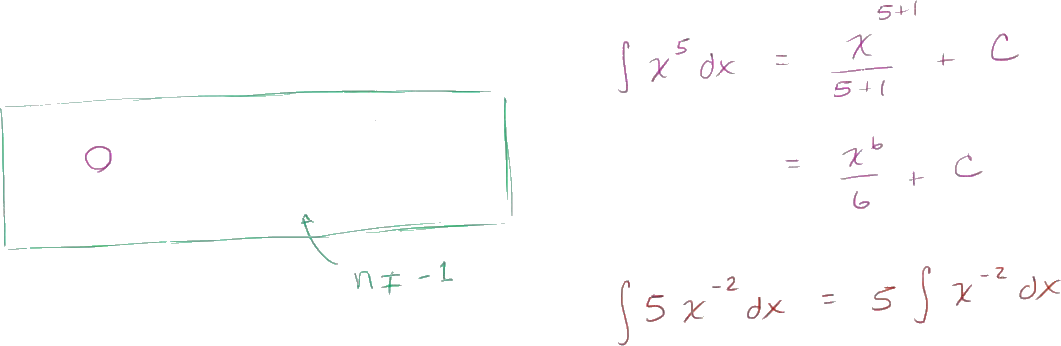 ∫ x^5 dx = x^(5+1)/(5+1) + C
= x^6/6 + C
n ≠ -1
∫ 5 x^-2 dx = 5 ∫ x^-2 dx